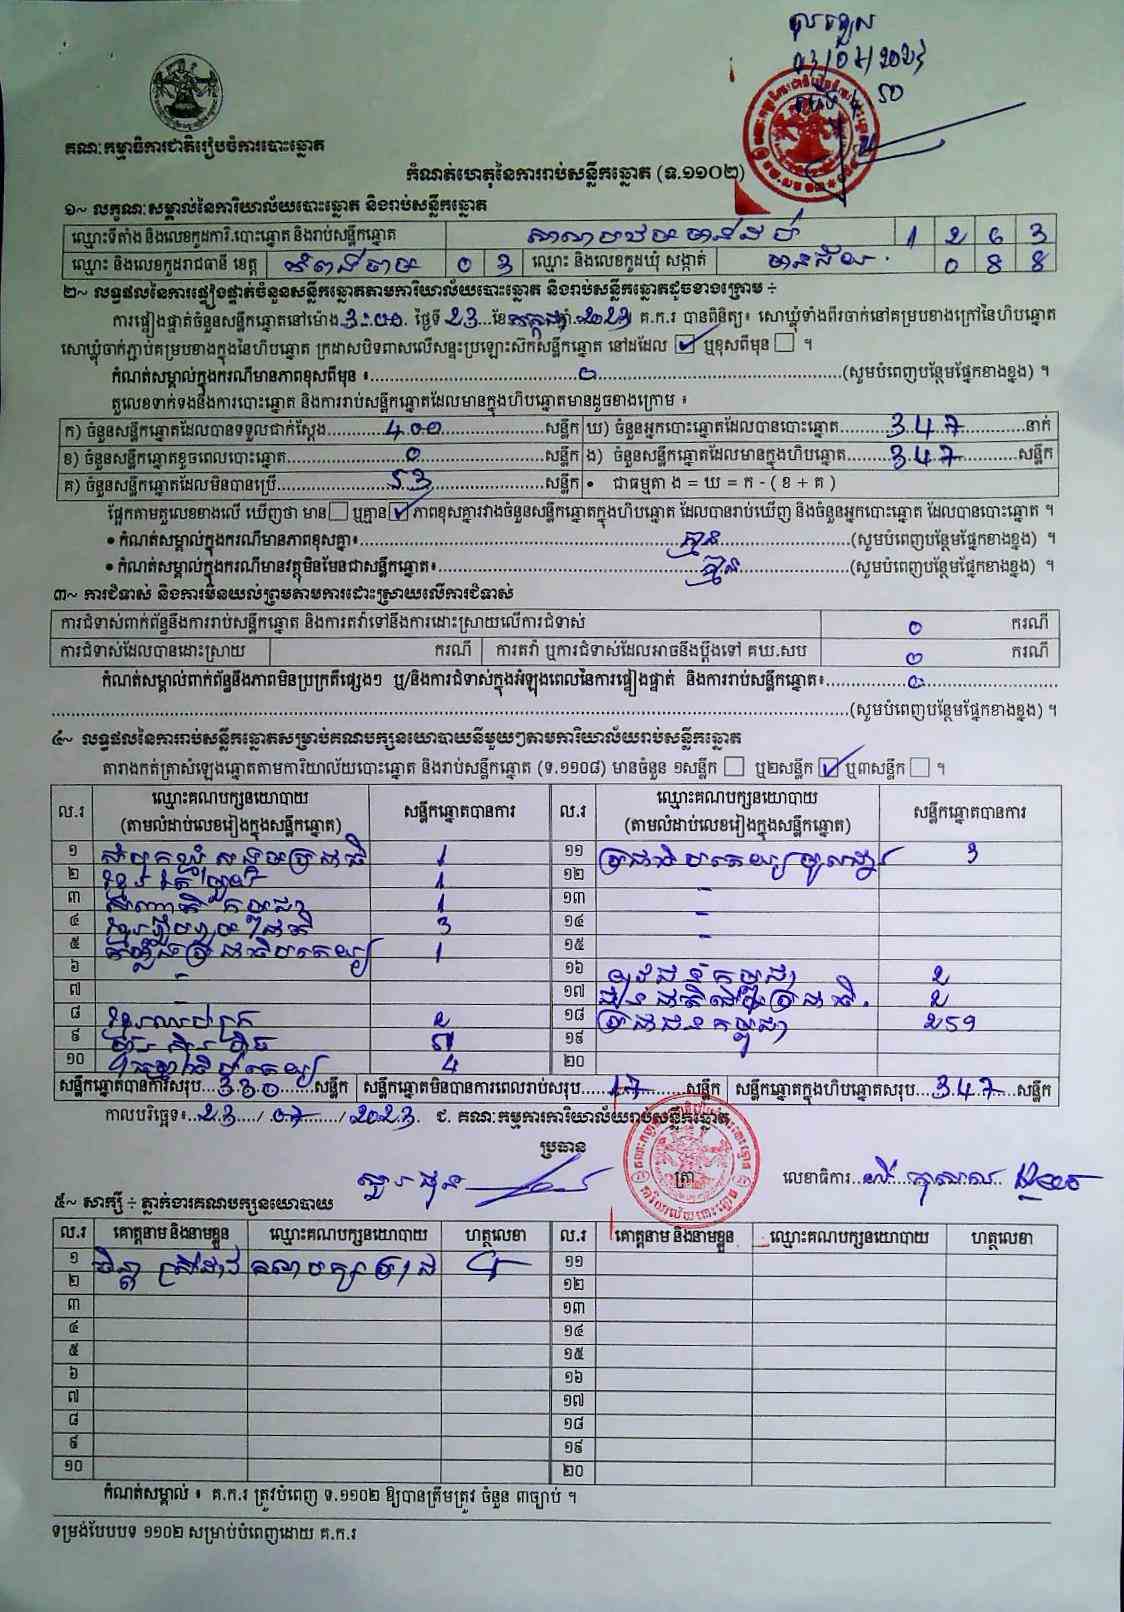 គណៈកម្មាធិការជាតិរៀបចំការបោះឆ្នោត
កំណត់ហេតុនៃការរាប់សន្លឹកឆ្នោត (ទ.១១០២)
១~ លក្ខណៈសម្គាល់នៃការិយាល័យបោះឆ្នោត និងរាប់សន្លឹកឆ្នោត
ឈ្មោះទីតាំង និងលេខកូដការិ.បោះឆ្នោត និងរាប់សន្លឹកឆ្នោត 1 2 6 3
ឈ្មោះ និងលេខកូដរាជធានី ខេត្ត កំពង់ចាម 0 3 ឈ្មោះ និងលេខកូដឃុំ សង្កាត់ មានជ័យ 0 8 8
២~ លទ្ធផលនៃការផ្ទៀងផ្ទាត់ចំនួនសន្លឹកឆ្នោតតាមការិយាល័យបោះឆ្នោត និងរាប់សន្លឹកឆ្នោតដូចខាងក្រោម ÷
ការផ្ទៀងផ្ទាត់ចំនួនសន្លឹកឆ្នោតនៅម៉ោង 3:00 ថ្ងៃទី 23 ខែ កក្កដា ឆ្នាំ 2023 គ.ក.រ បានពិនិត្យ៖ សោឃ្លុំទាំងពីរចាក់នៅគម្របខាងក្រៅនៃហិបឆ្នោត
សោឃ្លុំចាក់ភ្ជាប់គម្របខាងក្នុងនៃហិបឆ្នោត ក្រដាសបិទពាសលើសន្ទះប្រឡោះស៊កសន្លឹកឆ្នោត នៅដដែល ☑ ឬខុសពីមុន ☐ ។
កំណត់សម្គាល់ក្នុងករណីមានភាពខុសពីមុន ៖ 0 (សូមបំពេញបន្ថែមផ្នែកខាងខ្នង) ។
តួលេខទាក់ទងនឹងការបោះឆ្នោត និងការរាប់សន្លឹកឆ្នោតដែលមានក្នុងហិបឆ្នោតមានដូចខាងក្រោម ៖
ក) ចំនួនសន្លឹកឆ្នោតដែលបានទទួលជាក់ស្តែង 400 សន្លឹក ឃ) ចំនួនអ្នកបោះឆ្នោតដែលបានបោះឆ្នោត 347 នាក់
ខ) ចំនួនសន្លឹកឆ្នោតខូចពេលបោះឆ្នោត 0 សន្លឹក ង) ចំនួនសន្លឹកឆ្នោតដែលមានក្នុងហិបឆ្នោត 347 សន្លឹក
គ) ចំនួនសន្លឹកឆ្នោតដែលមិនបានប្រើ 53 សន្លឹក • ជាធម្មតា ង = ឃ = ក - ( ខ + គ )
ផ្អែកតាមតួលេខខាងលើ ឃើញថា មាន ☐ ឬគ្មាន ☑ ភាពខុសគ្នារវាងចំនួនសន្លឹកឆ្នោតក្នុងហិបឆ្នោត ដែលបានរាប់ឃើញ និងចំនួនអ្នកបោះឆ្នោត ដែលបានបោះឆ្នោត ។
• កំណត់សម្គាល់ក្នុងករណីមានភាពខុសគ្នា៖ គ្មាន (សូមបំពេញបន្ថែមផ្នែកខាងខ្នង) ។
• កំណត់សម្គាល់ក្នុងករណីមានវត្ថុមិនមែនជាសន្លឹកឆ្នោត៖ គ្មាន (សូមបំពេញបន្ថែមផ្នែកខាងខ្នង) ។
៣~ ការជំទាស់ និងការមិនយល់ព្រមតាមការដោះស្រាយលើការជំទាស់
ការជំទាស់ពាក់ព័ន្ធនឹងការរាប់សន្លឹកឆ្នោត និងការតវ៉ាទៅនឹងការដោះស្រាយលើការជំទាស់ 0 ករណី
ការជំទាស់ដែលបានដោះស្រាយ ករណី ការតវ៉ា ឬការជំទាស់ដែលអាចនឹងប្តឹងទៅ គឃ.សប 0 ករណី
កំណត់សម្គាល់ពាក់ព័ន្ធនឹងភាពមិនប្រក្រតីផ្សេងៗ ឬ/និងការជំទាស់ក្នុងអំឡុងពេលនៃការផ្ទៀងផ្ទាត់ និងការរាប់សន្លឹកឆ្នោត៖ 0
(សូមបំពេញបន្ថែមផ្នែកខាងខ្នង) ។
៤~ លទ្ធផលនៃការរាប់សន្លឹកឆ្នោតសម្រាប់គណបក្សនយោបាយនីមួយៗតាមការិយាល័យរាប់សន្លឹកឆ្នោត
តារាងកត់ត្រាសំឡេងឆ្នោតតាមការិយាល័យបោះឆ្នោត និងរាប់សន្លឹកឆ្នោត (ទ.១១០៨) មានចំនួន ១សន្លឹក ☐ ឬ២សន្លឹក ☑ ឬ៣សន្លឹក ☐ ។
ល.រ ឈ្មោះគណបក្សនយោបាយ (តាមលំដាប់លេខរៀងក្នុងសន្លឹកឆ្នោត) សន្លឹកឆ្នោតបានការ ល.រ ឈ្មោះគណបក្សនយោបាយ (តាមលំដាប់លេខរៀងក្នុងសន្លឹកឆ្នោត) សន្លឹកឆ្នោតបានការ
១ សំបុកឃ្មុំសង្គមប្រជាធិ 1 ១១ ប្រជាធិបតេយ្យមូលដ្ឋាន 3
២ 1 ១២ -
៣ 1 ១៣ -
៤ ខ្មែររួបរួមជាតិ 3 ១៤ -
៥ កម្លាំងប្រជាធិបតេយ្យ 1 ១៥ -
៦ - ១៦ យុវជនកម្ពុជា 2
៧ - ១៧ 2
៨ 2 ១៨ ប្រជាជនកម្ពុជា 259
៩ 7 ១៩
១០ ធម្មាធិបតេយ្យ 4 ២០
សន្លឹកឆ្នោតបានការសរុប 330 សន្លឹក សន្លឹកឆ្នោតមិនបានការពេលរាប់សរុប 17 សន្លឹក សន្លឹកឆ្នោតក្នុងហិបឆ្នោតសរុប 347 សន្លឹក
កាលបរិច្ឆេទ៖ 23 / 07 / 2023 ជ. គណៈកម្មការការិយាល័យរាប់សន្លឹកឆ្នោត
ប្រធាន
ត្រា លេខាធិការ
៥~ សាក្សី ÷ ភ្នាក់ងារគណបក្សនយោបាយ
ល.រ គោត្តនាម និងនាមខ្លួន ឈ្មោះគណបក្សនយោបាយ ហត្ថលេខា ល.រ គោត្តនាម និងនាមខ្លួន ឈ្មោះគណបក្សនយោបាយ ហត្ថលេខា
១ ១១
២ ១២
៣ ១៣
៤ ១៤
៥ ១៥
៦ ១៦
៧ ១៧
៨ ១៨
៩ ១៩
១០ ២០
កំណត់សម្គាល់ ៖ គ.ក.រ ត្រូវបំពេញ ទ.១១០២ ឱ្យបានត្រឹមត្រូវ ចំនួន ៣ច្បាប់ ។
ទម្រង់បែបបទ ១១០២ សម្រាប់បំពេញដោយ គ.ក.រ